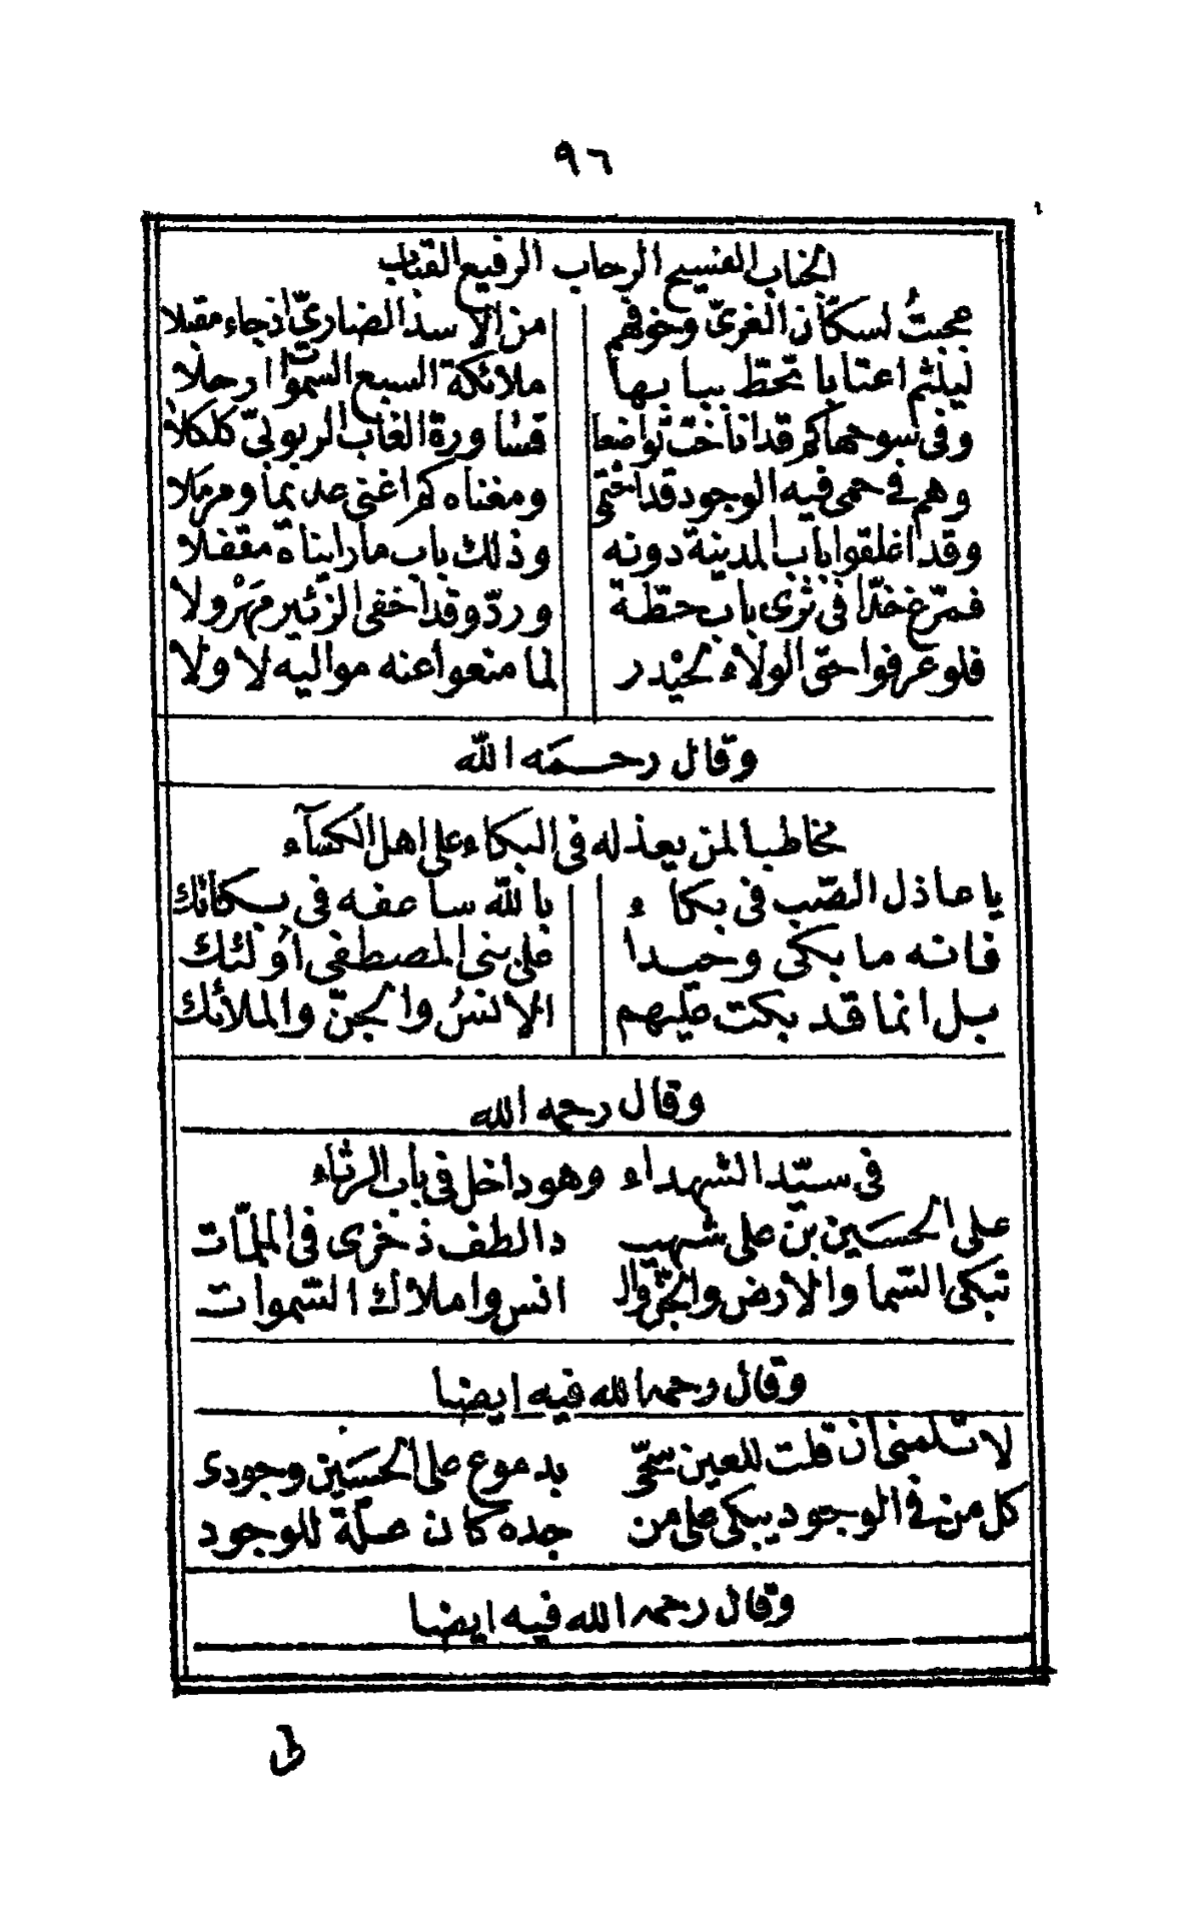 ٩٦
الجناب الفسيح الرحاب الرفيع القباب
عجبتُ لسكّان الغريّ وخوفهم من الأسد الضاريّ اذ جاء مقبلا
ليلثم اعتابا تحطّ ببابها ملائكة السبع السموات ارحلا
وفى سوحها كم قد اناخت تواضعا قساورة الغاب الربوبيّ كلكلا
وهم فى حمى فيه الوجود قد احتمى ومغناه كم اغنى عديما ومرملا
وقد اغلقوا باب المدينة دونه وذلك باب ما راينا مقفلا
فمرّغ خدّا فى ثرى باب حطّة وردّ وقد اخفى الزئير مهرولا
فلو عرفوا حق الولاء لحيدر لما منعوا عنه مواليه لا ولا
وقال رحمه اللّه
مخاطبا لمن يعذله فى البكاء على اهل الكسآء
يا عاذل الصّب فى بكاء باللّه ساعفه فى بكائك
فانه ما بكى وحيدا على بنى المصطفى اولئك
بل انما قد بكت عليهم الانسُ والجنّ والملائك
وقال رحمه الله
فى سيّد الشهداء وهو داخل فى باب الرثاء
على الحسين بن على شهيـ د الطف ذخرى فى الملمّات
تبكى السّما والارض والجنّ والـ انس واملاك السّموات
وقال رحمه الله فيه ايضا
لا تلمنى ان قلت للعين سحّى بدموع على الحسين وجودى
كل من فى الوجود يبكى على من جده كان علّة للوجود
وقال رحمه الله فيه ايضا